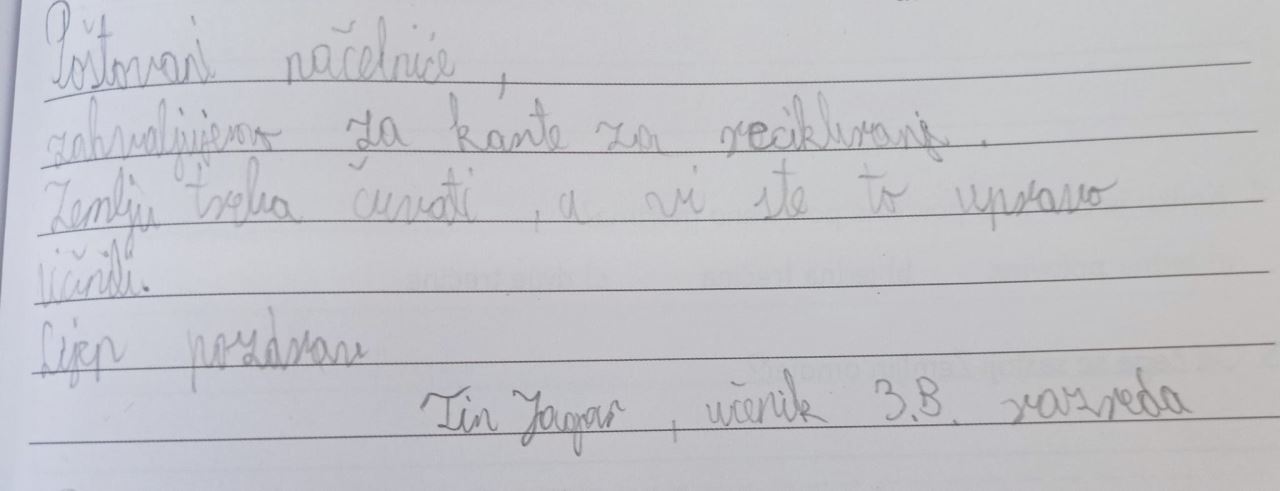 Poštovani načelniče,
zahvaljujemo za kante za recikliranje.
Zemlju treba čuvati, a vi ste to upravo
učinili.
Lijep pozdrav
Tin Jagar, učenik 3.B. razreda